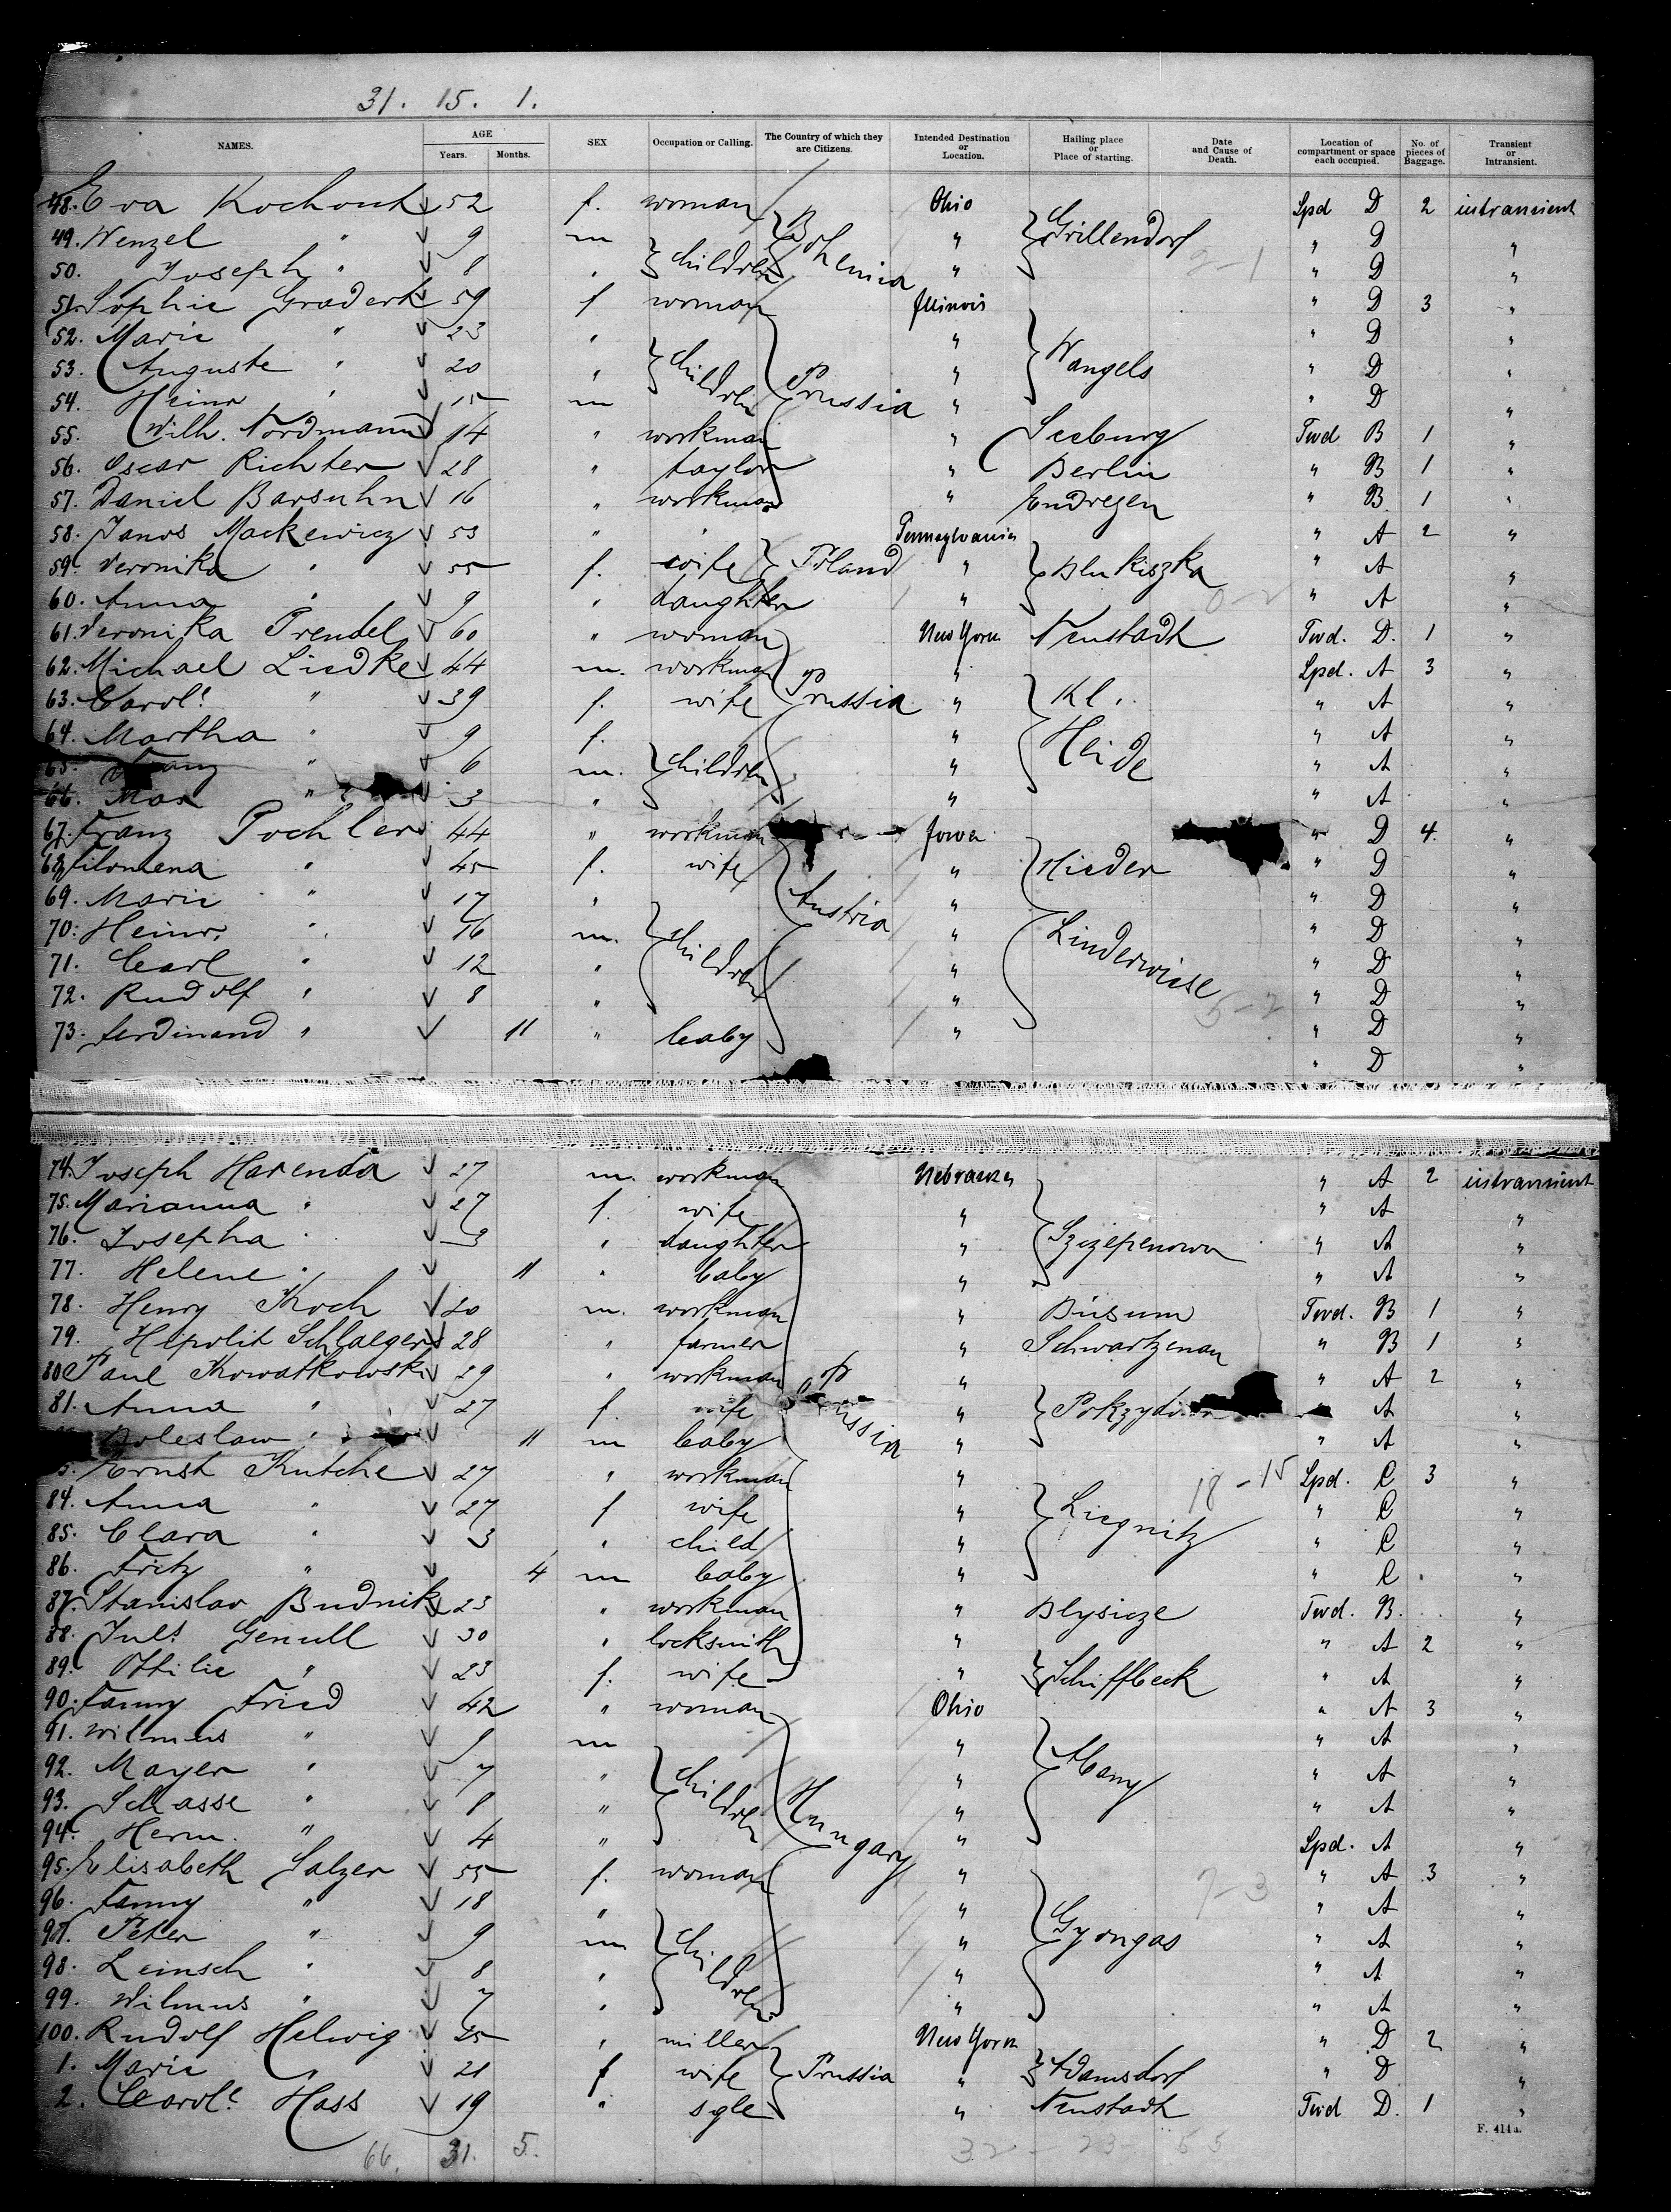 31. 15. 1.
NAMES. AGE Years. Months. SEX Occupation or Calling. The Country of which they are Citizens. Intended Destination or Location. Hailing place or Place of starting. Date and Cause of Death. Location of compartment or space each occupied. No. of pieces of Baggage. Transient or Intransient.
48. Eva Kochout 52 f. woman Bohemia Ohio Grillendorf Spd D 2 intransient
49. Wenzel " 9 m children " " D "
50. Joseph " 8 " " " D "
51. Sophie Graderk 59 f woman Illinois " D 3 "
52. Marie " 23 " children Prussia " Wangels " D "
53. Auguste " 20 " " " D "
54. Heinr " 15 m " " D "
55. Wilh. Nordmann 14 " workman " Seeburg Twd B 1 "
56. Oscar Richter 28 " taylor " Berlin " B 1 "
57. Daniel Barsuhn 16 " workman " Endrezen " B 1 "
58. Janos Mackewicz 53 " " Pennsylvania " A 2 "
59. Veronika " 55 f. wife Poland " " A "
60. Anna " 9 " daughter " " A "
61. Veronika Prendel 60 " woman New York Neustadt Twd. D. 1 "
62. Michael Liedke 44 m. workman Prussia " Spd. A 3 "
63. Carol. " 39 f. wife " Kl. Heide " A "
64. Martha " 9 f. children " " A "
65. Franz " 6 m. " " A "
66. Max " 3 " " " A "
67. Franz Pochler 44 " workman Iowa " D 4. "
68. Filomena " 45 f. wife Austria " Nieder Linderwiese " D "
69. Marie " 17 " children " " D "
70. Heinr. " 16 m. " " D "
71. Carl " 12 " " " D "
72. Rudolf " 8 " " " D "
73. Ferdinand " 11 " baby " " D "
" D "
74. Joseph Harenda 27 m. workman Nebraska " A 2 intransient
75. Marianna " 27 f. wife " " A "
76. Josepha " 3 " daughter " " A "
77. Helene " 11 " baby " " A "
78. Henry Koch 20 m. workman " Büsum Twd. B 1 "
79. Hepolit Schlaeger 28 " farmer " Schwartzenau " B 1 "
80. Paul Kowatkowski 29 " workman Prussia " " A 2 "
81. Anna " 27 f. wife " A "
Boleslaw " 11 m baby " " A "
Ernst Kutche 27 " workman " 18-15 Spd. C 3 "
84. Anna " 27 f wife " Liegnitz " C "
85. Clara " 3 " child " " C "
86. Fritz " 4 m baby " " C "
87. Stanislav Budnik 23 " workman " Blysicze Twd. B. "
88. Juls. Genull 30 " locksmith " " A 2 "
89. Ottilie " 23 f. wife " Schiffbeck " A "
90. Fanny Fried 42 " woman Ohio " A 3 "
91. Wilmus " 9 m children Hungary " Abany " A "
92. Mayer " 7 " " " A "
93. Schasse " 8 " " " A "
94. Herm. " 4 " " Spd. A "
95. Elisabeth Salzer 55 f. woman " 7-3 " A 3 "
96. Fanny " 18 " children " Gyongas " A "
97. Peter " 9 m " " A "
98. Leinsch " 8 " " " A "
99. Wilmus " 7 " " " A "
100. Rudolf Helwig 25 " miller New York " D 2 "
1. Marie " 21 f wife Prussia " Adamsdorf " D "
2. Carol. Hass 19 " sgle " Neustadt Twd D. 1 "
F. 414a.
66. 31. 5. 32 - 23 - 55